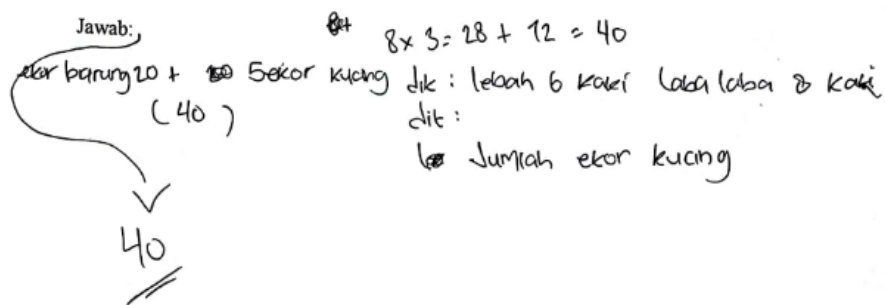 Jawab:
8 x 3 = 28 + 12 = 40
ekor barung 20 + 5 ekor kucing
(40)
40
dik : lebah 6 kaki laba laba 8 kaki
dit :
Jumlah ekor kucing